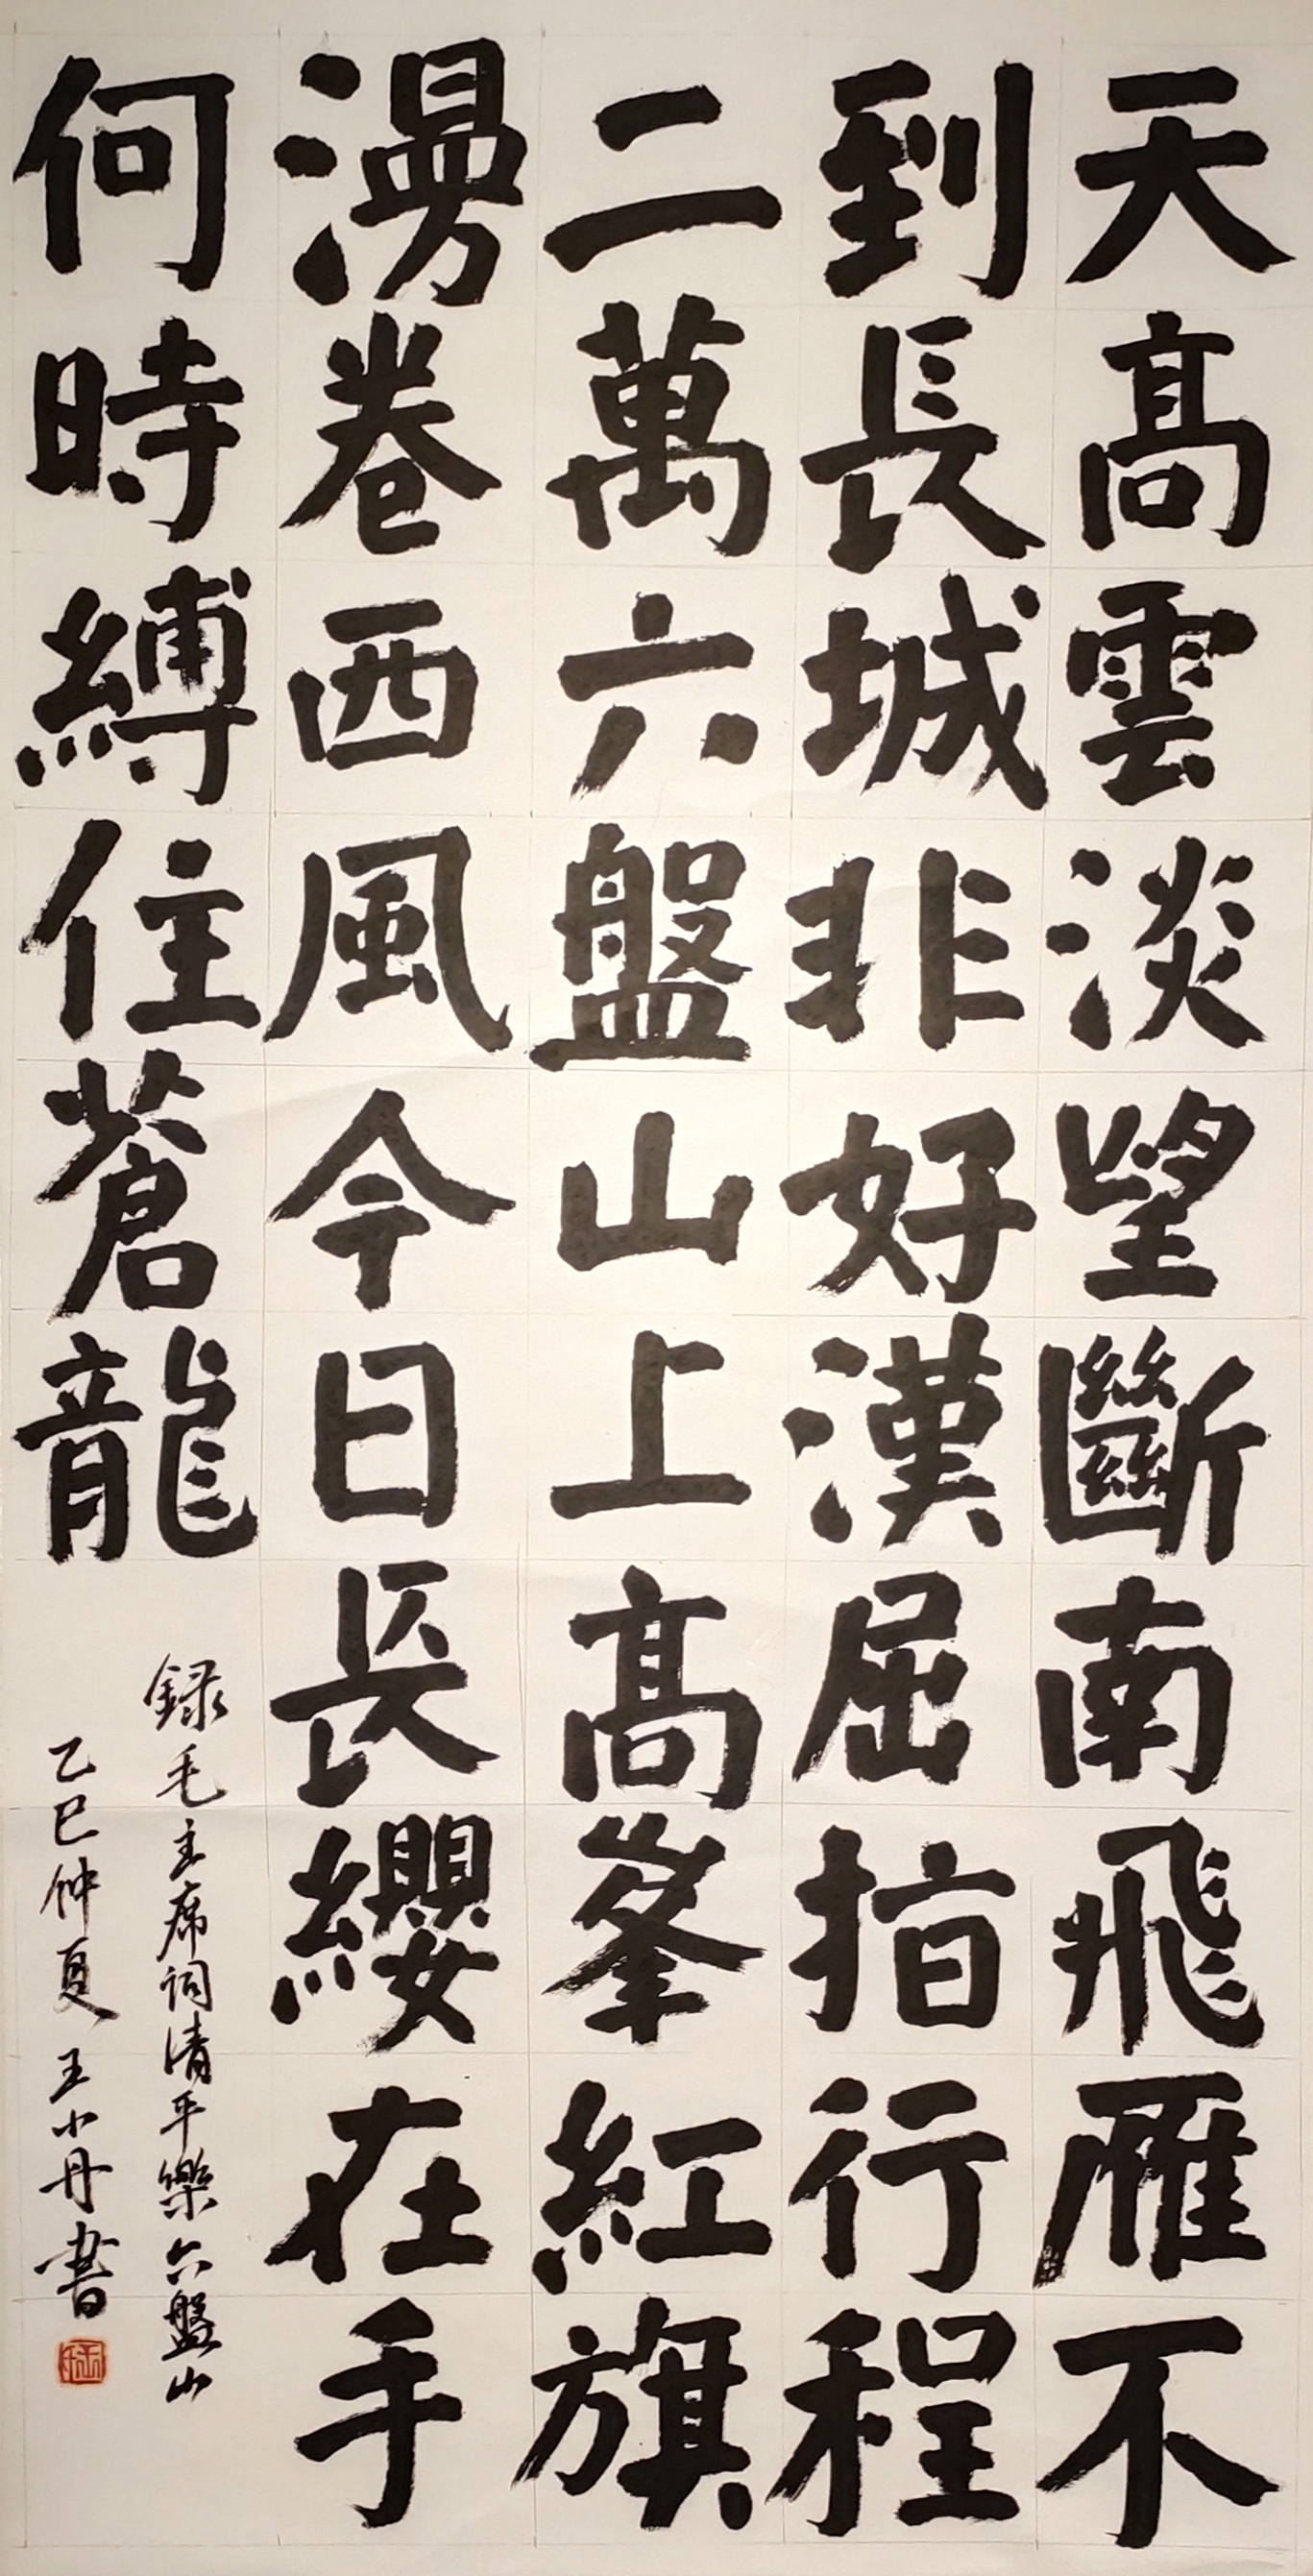 天高雲淡望斷南飛雁不
到長城非好漢屈指行程
二萬六盤山上高峯紅旗
漫卷西風今日長纓在手
何時縛住蒼龍
録毛主席词清平樂六盤山
乙巳仲夏王小丹書